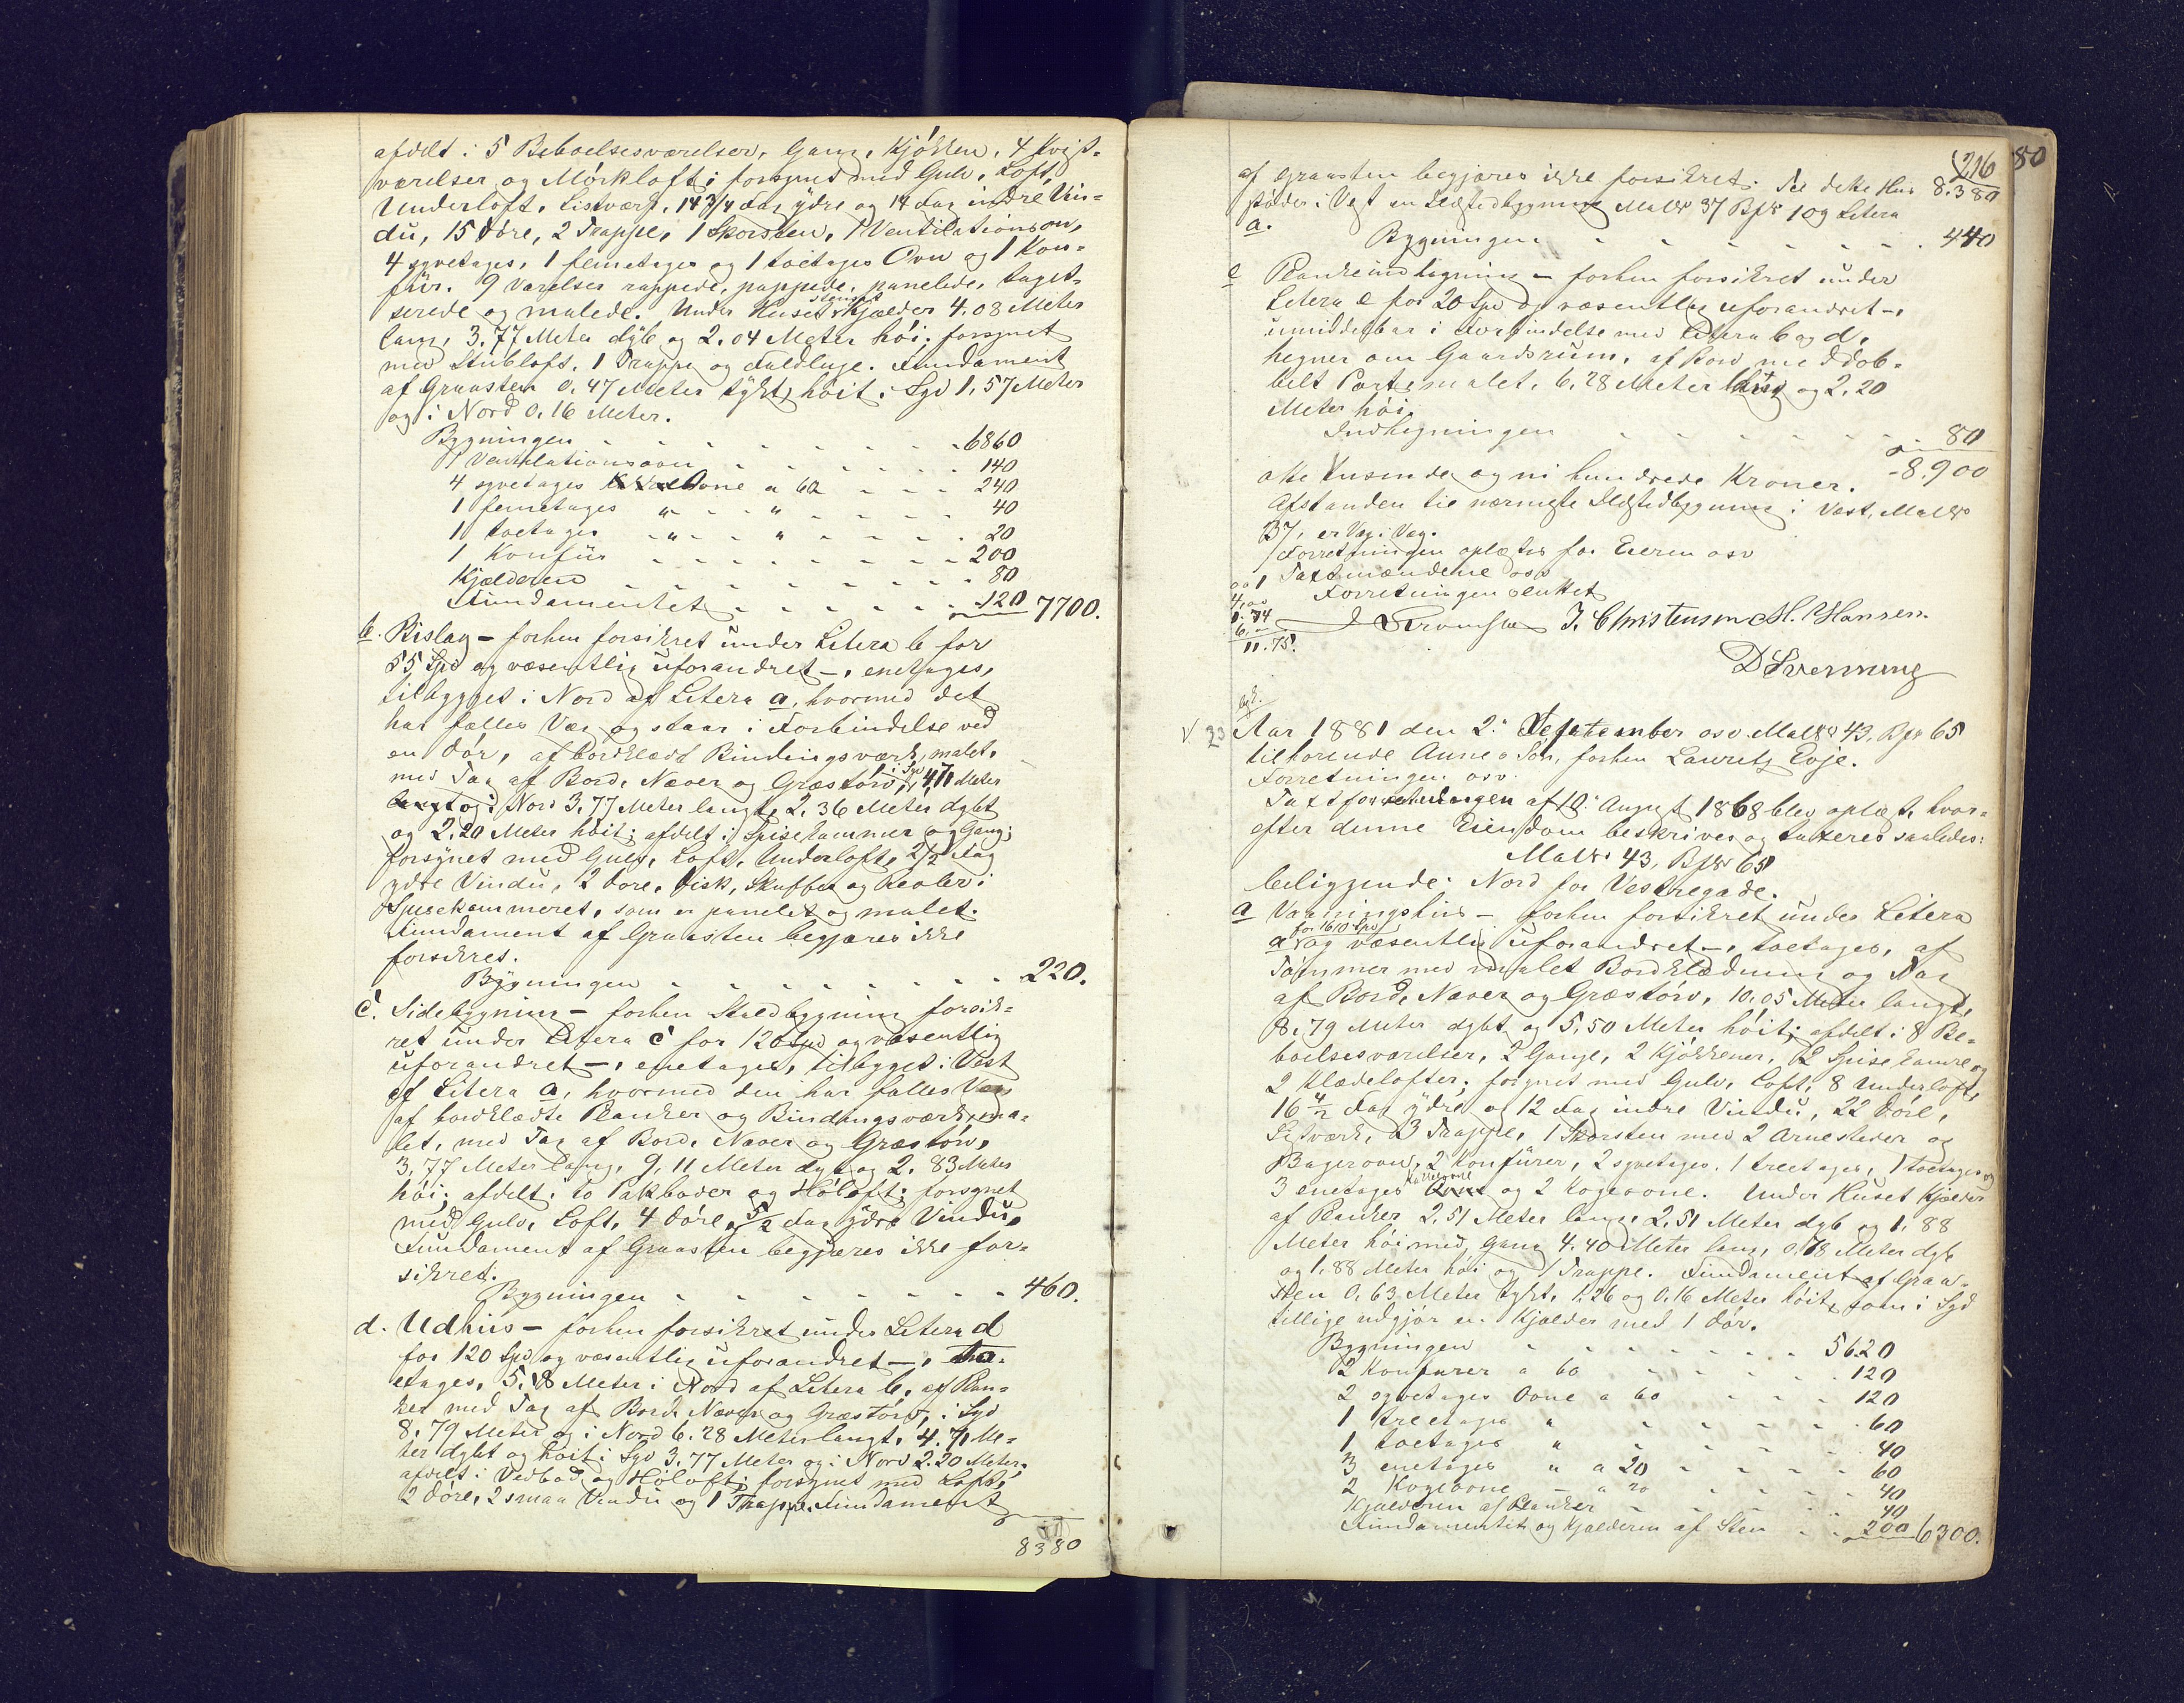 afdelt i 5 Beboelsesværelser, Gang, Kjökken, 4 Kvist-
værelser og Mörkloft; forsynet med Gulv, Loft,
Underloft, Listværk, 14 3/4 Fag ydre og 14 Fag indre Vin-
du, 15 Döre, 2 Trappe, 1 Skorsten, 1 Ventilationsovn,
4 syvetages, 1 femetages og 1 toetages Ovn og 1 Kom-
für. 9 Værelser rappede, pappede, panelede, tapet-
serede og malede. Under Huset stensat Kjælder 4.08 Meter
lang, 3.77 Meter dyb og 2.04 Meter höi; forsynet
med Stubloft, 1 Trappe og Faldluge. Fundament
af Graasten 0.47 Meter tykt, höit i Syd 1.57 Meter
og i Nord 0.16 Meter.
Bygningen - - - 6860
1 Ventilationsovn - - - 140
4 syvetages Ovne a 60 - - - 240
1 femetages " - " - - 40
1 toetages - " - " - - 20
1 Komfür - - - 200
Kjælderen - - - 80
Fundamentet - - - 120 7700.
b. Bislag - forhen forsikret under Litera b for
55 Spd og væsentlig uforandret -, enetages,
tilbygget i Nord af Litera a, hvormed det
har fælles Væg og staar i Forbindelse ved
en Dör, af bordklædt Bindingsværk, malet,
med Tag af Bord, Næver og Græstörv, i Syd 4.71 Meter
langt og i Nord 3.77 Meter langt, 2.36 Meter dybt
og 2.20 Meter höit; afdelt i Spisekammer og Gang;
forsynet med Gulv, Loft, Underloft, 2/2 Fag
ydre Vindu, 2 Döre, Disk, Skuffer og Reoler i
Spisekammeret, som er panelet og malet.
Fundament af Graasten begjæres ikke
forsikret.
Bygningen - - - 220.
c. Sidebygning - forhen Staldbygning forsik-
ret under Litera c for 120 Spd og væsentlig
uforandret -, enetages, tilbygget i Vest
af Litera a, hvormed den har fælles Væg
af bordklædte Planker og Bindingsværk, ma-
let, med Tag af Bord, Næver og Græstörv,
3.77 Meter lang, 9.11 Meter dyb og 2.83 Meter
höi; afdelt i to Pakboder og Höloft; forsynet
med Gulv, Loft, 4 Döre, 5/2 Fag ydre Vindu.
Fundament af Graasten begjæres ikke for-
sikret.
Bygningen - - - 460.
d. Udhus - forhen forsikret under Litera d
for 120 Spd og væsentlig uforandret -, to-
etages, 5.18 Meter i Nord af Litera b, af Plan-
ker med Tag af Bord, Næver og Græstörv, i Syd
8.79 Meter og i Nord 6.28 Meter langt, 4.71 Me-
ter dybt og höit i Syd 3.77 Meter og i Nord 2.20 Meter;
afdelt i Vedbod og Höloft; forsynet med Loft,
2 Döre, 2 smaa Vindu og 1 Trappe. Fundament
8380
216 80
af Graasten begjæres ikke forsikret. Til dette Hus 8.380
stöder i Vest en Ildstedbygning MatNr 37 BpNr 109 Litera
a.
Bygningen - - - 440
e Plankeindhegning - forhen forsikret under
Litera e for 20 Spd og væsentlig uforandret -,
umiddelbar i Forbindelse med Litera b og d,
hegner om Gaardsrum, af Bord med dob-
belt Port, malet, 6.28 Meter lang og 2.20
Meter höi.
Indhegningen - - - 80
otte tusende og ni hundrede Kroner. - 8.900
Afstanden til nærmeste Ildstedbygning i Vest, MatNr
37, er Væg i Væg.
Forretningen oplæstes for Eieren osv
Taxtmændene osv
Forretningen sluttet
4,00
1.74
6. -
11.75.
J. Christensen M. Hansen.
D Svenning
V. 23 Aar 1881 den 2. September osv MatNo 43, BpNr 65
tilhörende Anne o Sön, forhen Lauritz Evje.
Forretningen osv.
Taxtforretningen af 10. August 1868 blev oplæst, hvor-
efter denne Eiendom beskrives og taxeres saaledes:
MatNr 43, BpNr 65
beliggende i Nord for Vestregade.
a Vaaningshus - forhen forsikret under Litera
a for 1610 Spd og væsentlig uforandret -, toetages, af
Tömmer med malet Bordklædning og Tag
af Bord, Næver og Græstörv, 10.05 Meter langt,
8.79 Meter dybt og 5.50 Meter höit; afdelt i 8 Be-
boelsesværelser, 2 Gange, 2 Kjökkener, 2 Spisekamre og
2 Klædelofter; forsynet med Gulv, Loft, 8 Underloft,
16 4/2 Fag ydre og 12 Fag indre Vindu, 22 Döre,
Listværk, 3 Trappe, 1 Skorsten med 2 Arnesteder og
Bagerovn, 2 Komfürer, 2 syvetages, 1 treetages, 1 toetages og
3 enetages Kakkelovne og 2 Kogeovne. Under Huset Kjælder
af Planker 2.51 Meter lang, 2.51 Meter dyb og 1.88
Meter höi med Gang 4.40 Meter lang, 0.78 Meter dyb
og 1.88 Meter höi og 1 Trappe. Fundament af Graa-
sten 0.63 Meter tykt, 1.26 og 0.16 Meter höit, som i Syd
tillige udgjör en Kjælder med 1 Dör.
Bygningen - - - 5620
2 Komfürer a 60 - - - 120
2 syvetages Ovne a 60 - - - 120
1 treetages " - - - 60
1 toetages " - - - 40
3 enetages " a 20 - - - 60
2 Kogeovne - a 20 - - - 40
Kjælderen af Planker - - - 40
Fundamentet og Kjælderen af Sten - - 200 6300.